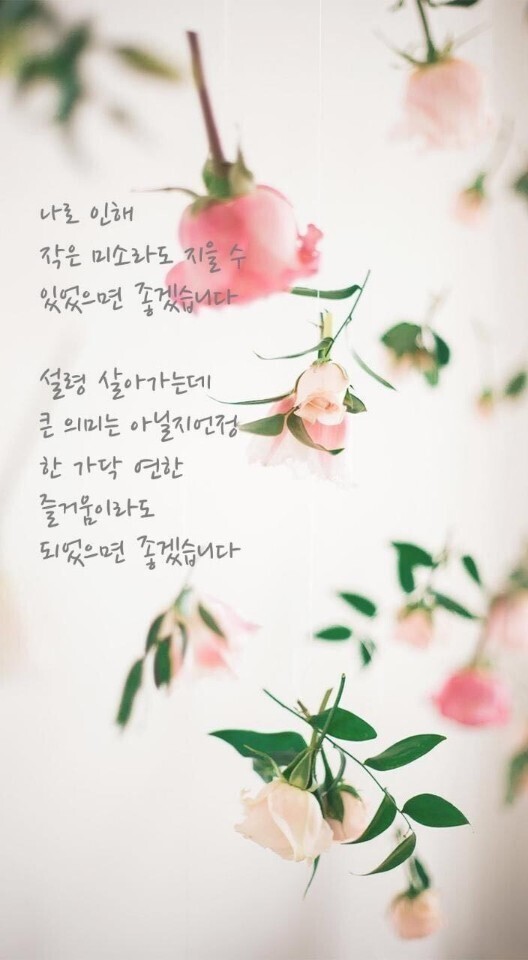 나로 인해
작은 미소라도 지을 수
있었으면 좋겠습니다
설령 살아가는데
큰 의미는 아닐지언정
한 가닥 연한
즐거움이라도
되었으면 좋겠습니다